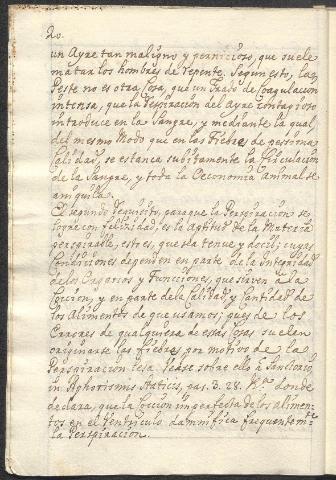 20.
un Ayre tan maligno y pernicioso, que suele
matar los hombres de repente. Segun esto, la
Peste no es otra cosa, que un Grado de Coagulacion
intensa, que la Respiracion del Ayre Contagioso
introduce en la Sangre, y mediante la qual
del mesmo Modo que en las Fiebres de
Calidad, se estanca subitamente la Circulacion
de la Sangre, y toda la Oeconomia animal se
aniquila.
El segundo requisito, para que la Perspiracion se
logra con felicidad, es la Aptitud de la Materia
perspirable, esto es, que sea tenue y docil; cuyas
Condiciones dependen en parte de la Integridad
de los Organos y Funciones, que sirven a la
Coccion, y en parte de la Calidad, y Cantidad de
los Alimentos de que usamos; pues de los
Errores de qualquiera de estas cosas suelen
originarse las fiebres, por motivo de la
Perspiracion lesa. Vease sobre ello a Sanctorio
in Aphorismis Staticis, pars. 3. 28. donde
declara, que la Coccion imperfecta de los alimen-
tos en el Ventriculo damnifica frequentemte
la Perspiracion.